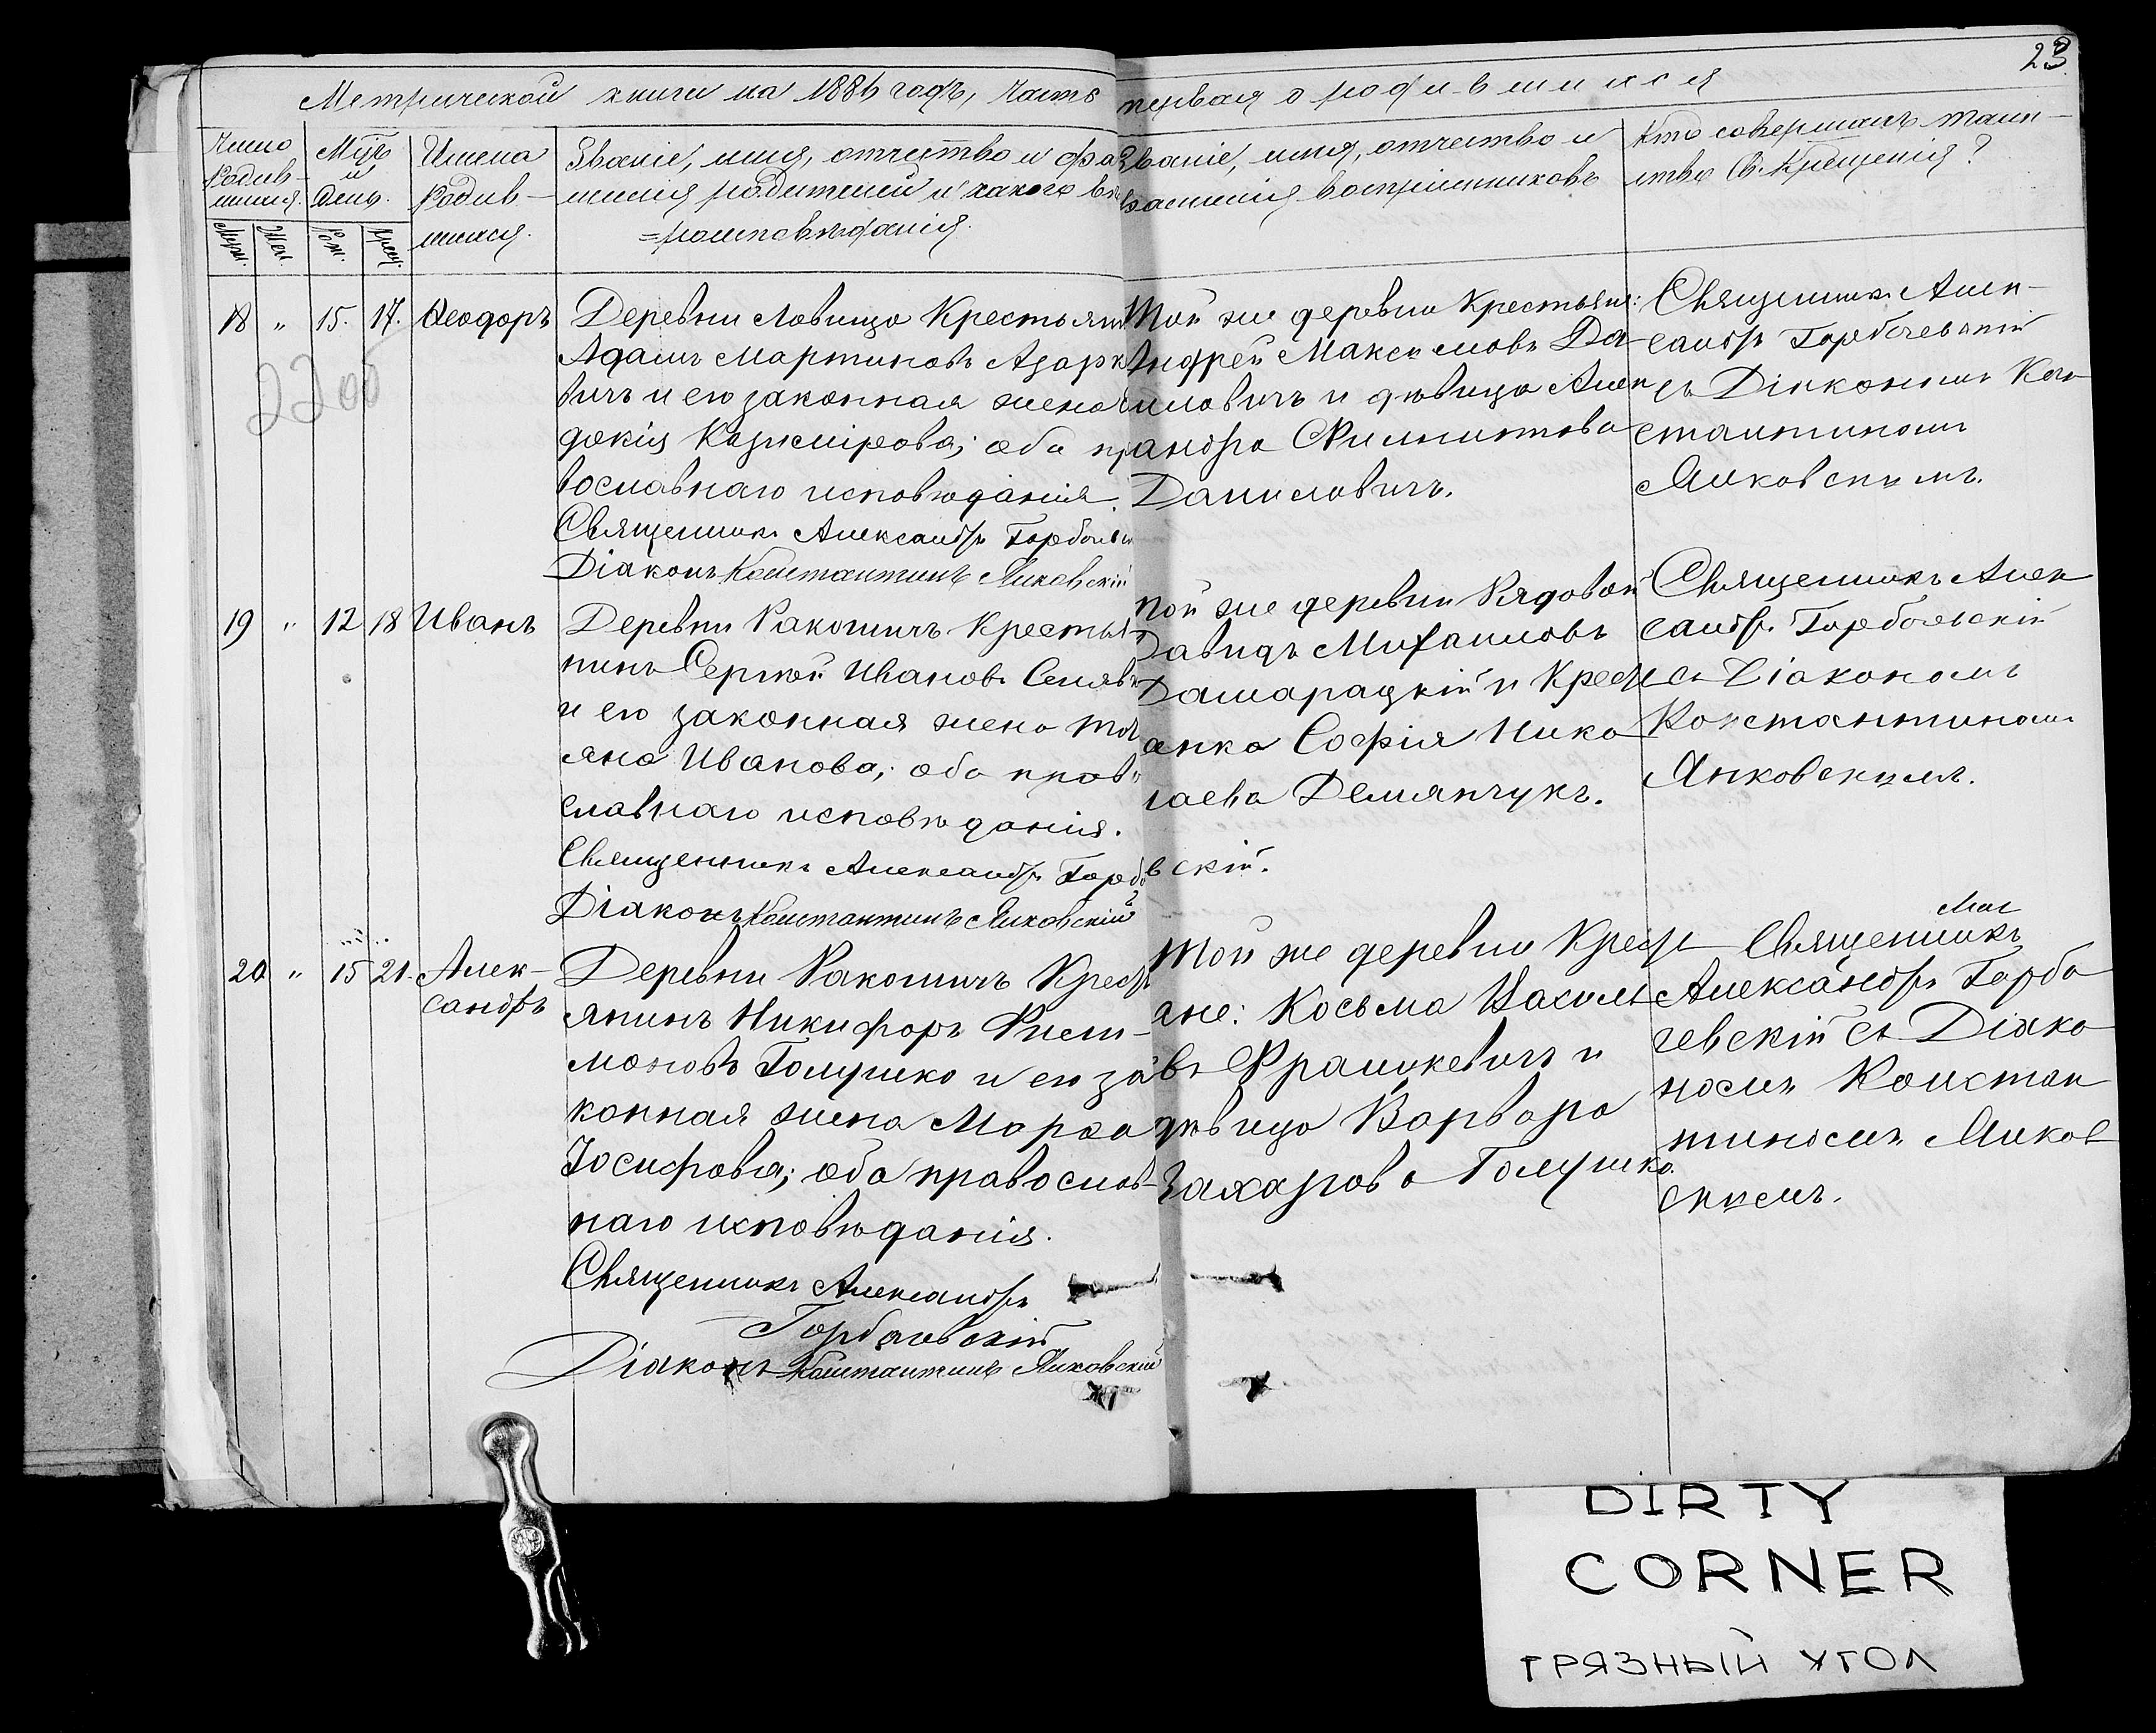 23
Метрической книги на 1886 годъ, часть первая о родившихся
Число родив-шихся.
Мцъ и день.
Имена родив-шихся.
Званіе, имя, отчество и фа
милія родителей и какого вѣ
=роисповѣданія.
Званіе, имя, отчество и
фамилія воспріемниковъ
Кто совершалъ таин-
ство Св. Крещенія?
Муж.
Жен.
Рож.
Крещ.
18 " 15. 17. Ѳеодоръ
Деревни Ловища Крестьянинъ
Адамъ Мартиновъ Азарк
вичъ и его законная жена Ев
докія Казимірова; оба пра
вославнаго исповѣданія.
Священникъ Александръ Горбачев
Діаконъ Константинъ Янковскій
Той же деревни Крестьян:
Андрей Максимовъ Да-
ниловичъ и дѣвица Алек
сандра Филиппова
Даниловичъ.
Священникъ Алек-
сандръ Горбачевскій
съ Діакономъ Кон
стантиномъ
Янковскимъ.
22об
19 " 12 18 Иванъ
Деревни Ракошичъ Крестья-
нинъ Сергѣй Ивановъ
и его законная жена Тать
яна Иванова; оба право
славнаго исповѣданія.
Священникъ Александръ Горбачевскій.
Діаконъ Константинъ Янковскій
Той же деревни Рядовой
Давидъ Михаиловъ
Дамарацкій и Крестья
анка Софія Нико
лаева Демянчукъ.
Священникъ Алек
сандръ Горбачевскій
съ Діакономъ
Константиномъ
Янковскимъ.
20 " 15 21. Алек-
сандръ
Деревни Ракошичъ Кресть
янинъ Никифоръ Фили-
моновъ Голушко и его за
конная жена Марѳа
Іосифова; оба православ-
наго исповѣданія.
Священникъ Александръ
Горбачевскій
Діаконъ Константинъ Янковскій
Той же деревни Кресть
яне: Косьма Васильe
въ Францкевичъ и
дѣвица Варвара
Захарова Голушко.
Священникъ
Александръ Горба
чевскій съ Діако
номъ Констан
тиномъ Янков
скимъ.
DIRTY
CORNER
ГРЯЗНЫЙ УГОЛ